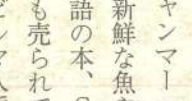 ャンマー
新鮮な魚
語の本、
も売られ